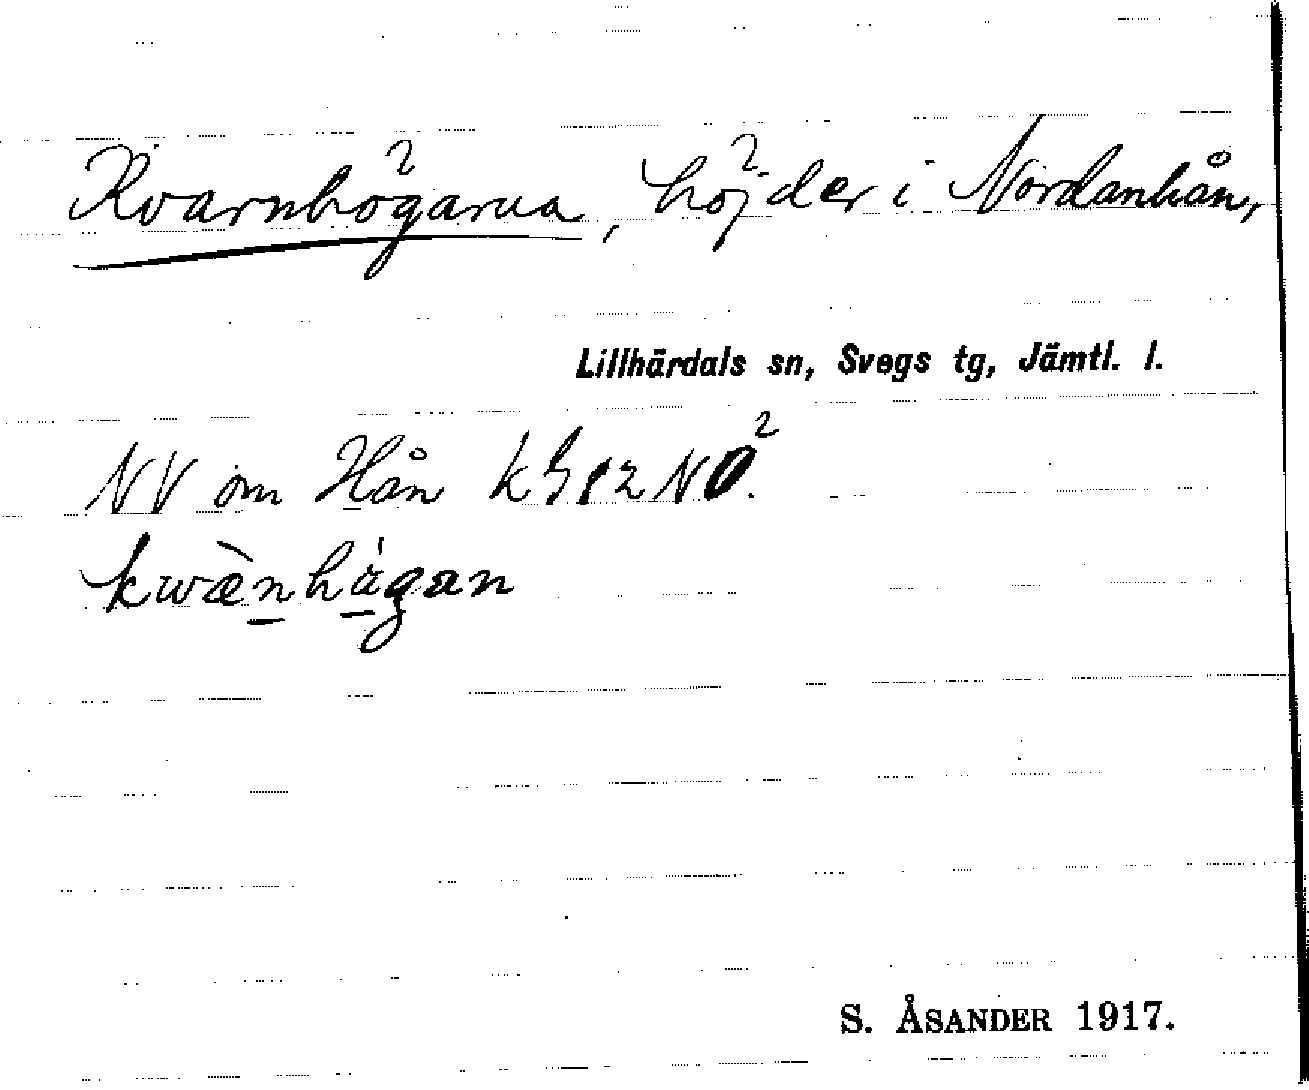 Kvarnhögarna, höjder i Nordanhån,
Lillhärdals sn, Svegs tg, Jämtl. l.
NV om Hån
kwæ̀nhágan
S. ÅSANDER 1917.